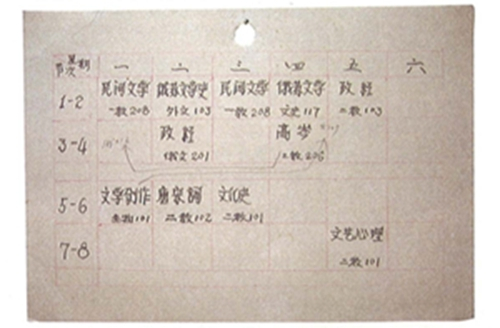 星期 一 二 三 四 五 六
节次
1-2 民间文学 俄苏文学史 民间文学 俄苏文学 政经
一教208 外文103 一教208 文史117 二教103
3-4 政经
俄文201
5-6 文学创作 唐宋词 文化史
101 二教102 二教101
7-8 文艺心理
二教101